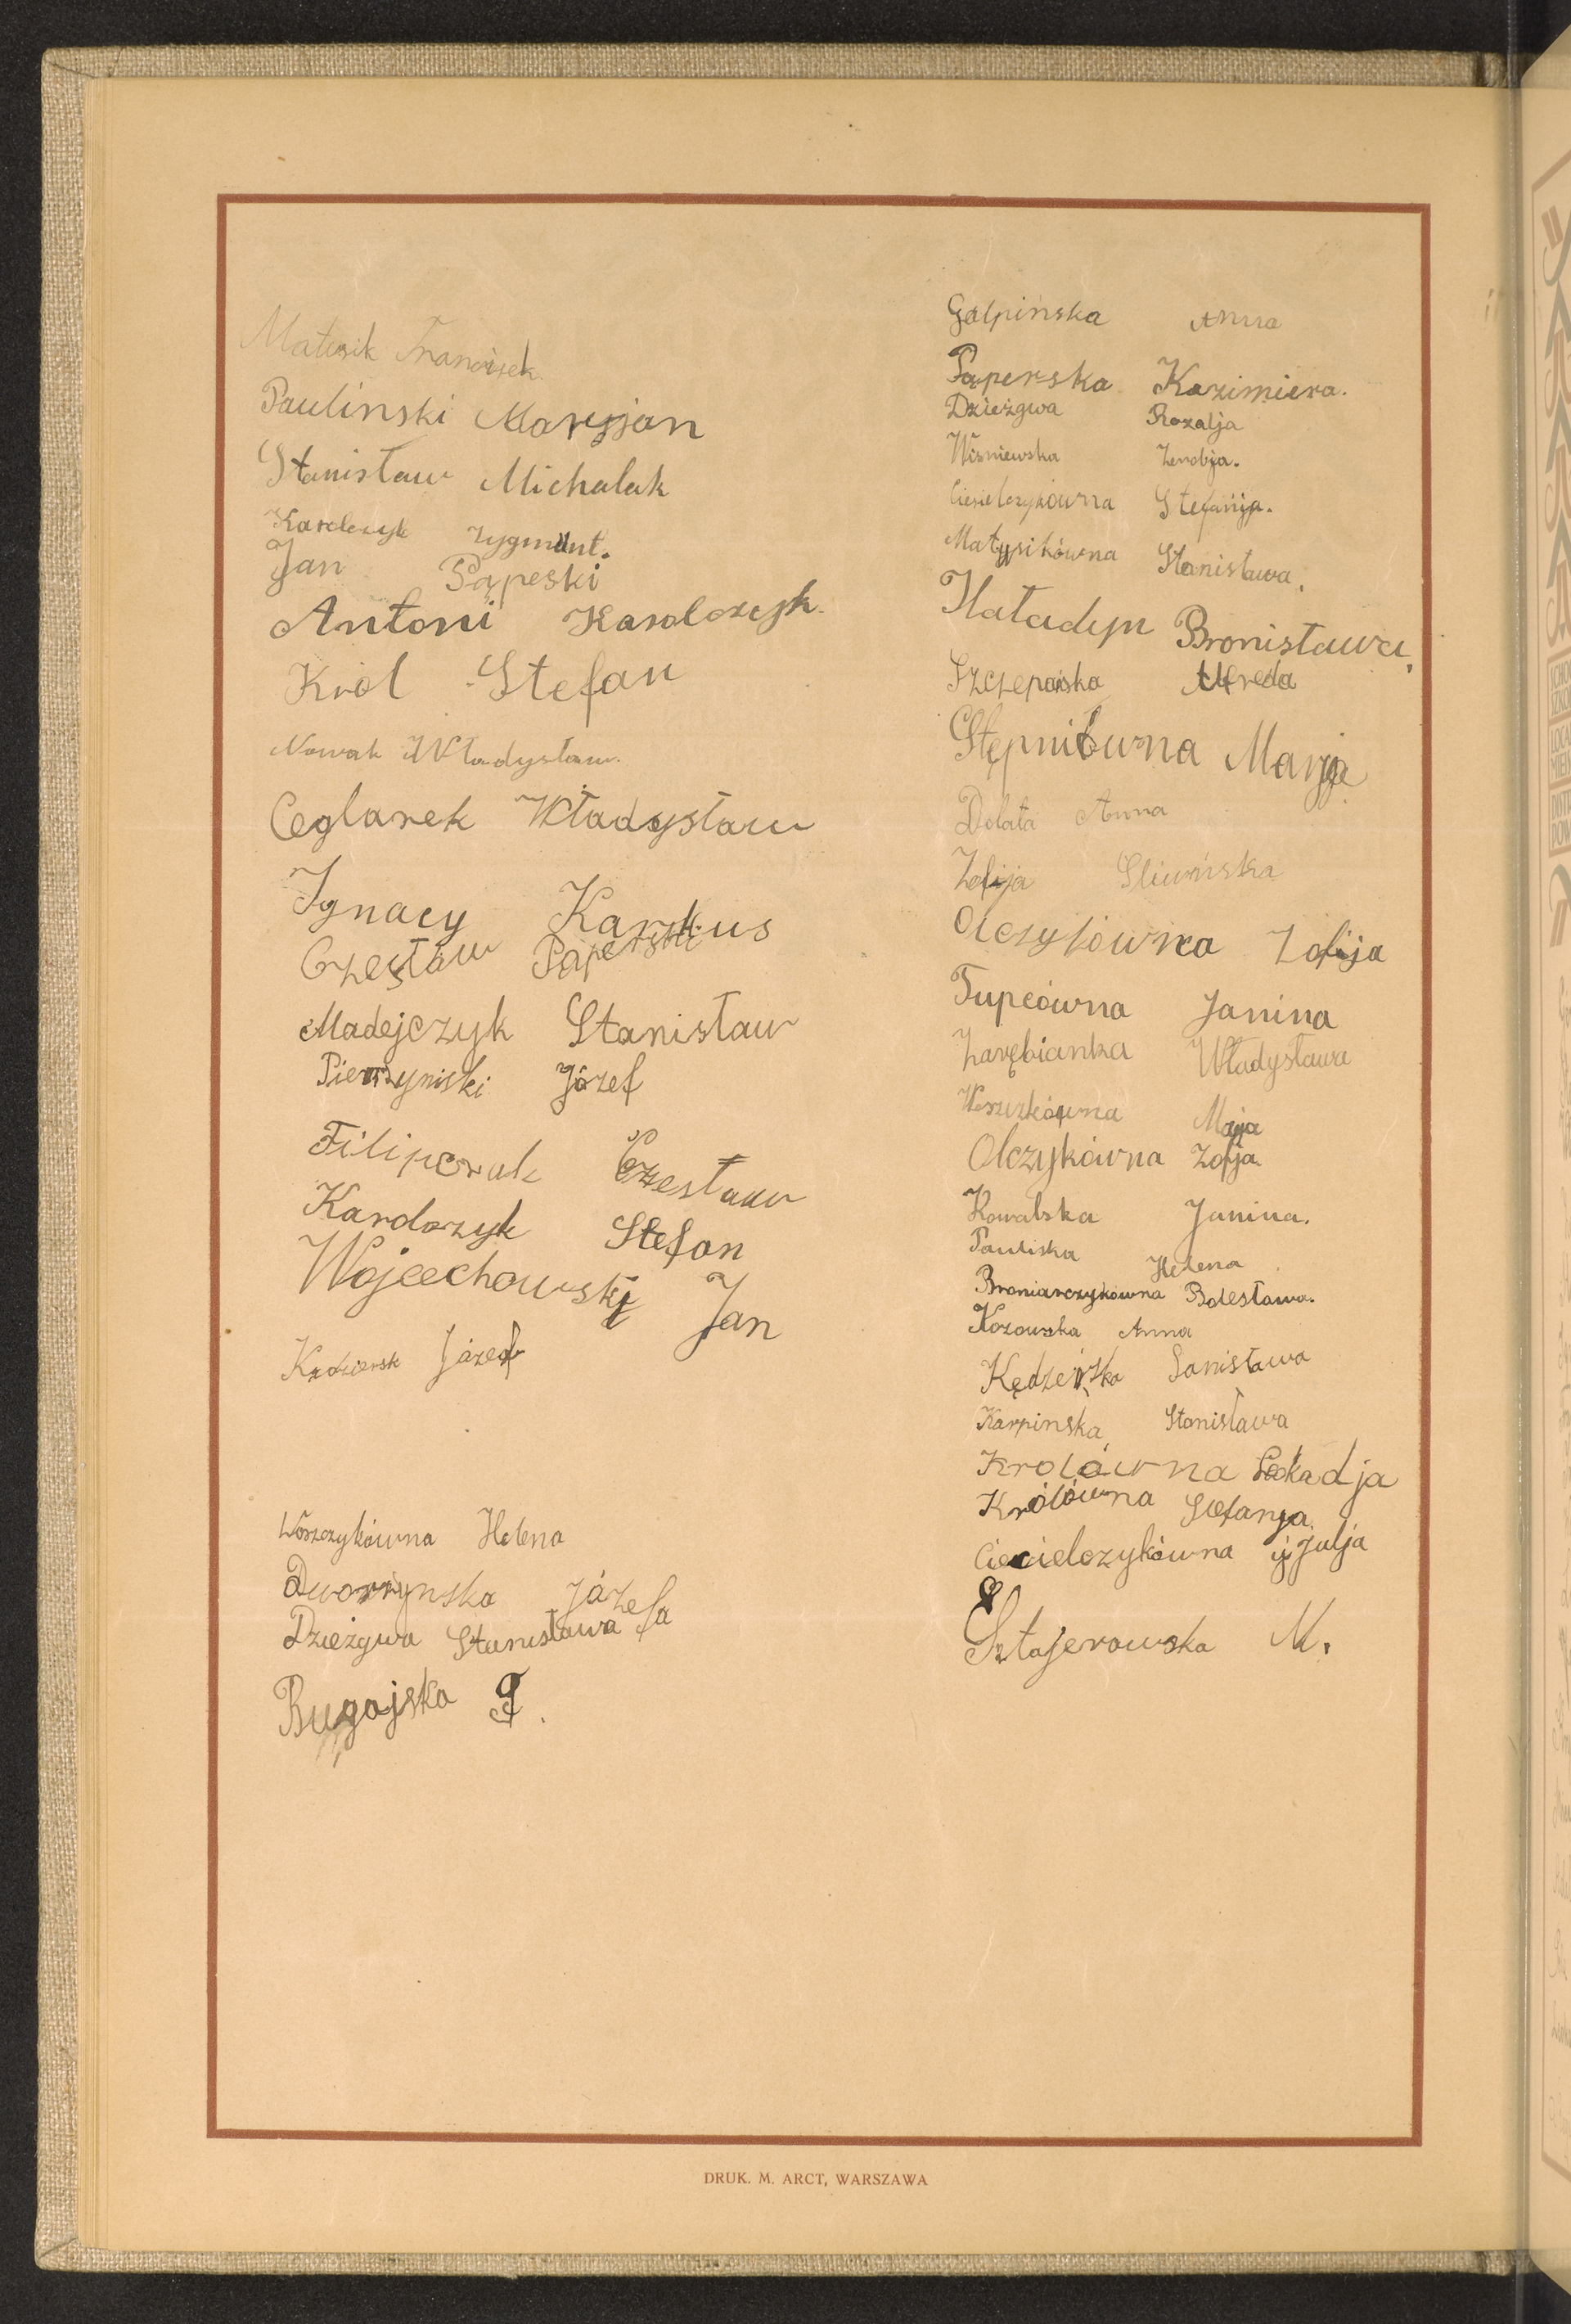 Matusik Franciszek
Pauliński Maryjan
Stanisław Michalak
Karolczyk Zygmunt.
Jan Pąpeski
Antoni Karolczyk.
Król Stefan
Nowak Władysław.
Ceglarek Władysław
Ignacy
Czesław Paperski
Madejczyk Stanisław
Józef
Filipowak Czesław
Karolczyk Stefan
Wojcechowski Jan
Józef
Woszczykówna Helena
Józefa
Dzieżgwa Stanisława
Bugajska
Galpińska Anna
Paperska Kazimiera.
Dzieżgwa Rozalja
Wiśniewska Zenobja.
Ciesielczykówna Stefanja.
Matysikówna Stanisława.
Hatadyn Bronisława,
Szczepańska Alfreda
Stępniówna Marja
Dolata Anna
Zofija Śliwińska
Olczykówna Zofija
Tupcówna Janina
Zarębianka Władysława
Maja
Olczykówna Zofja.
Kowalska Janina.
Pauliska Helena
Broniarczykówna Bolesława.
Kozowska Anna
Kędzerska Sanisława
Karpinska Stanisława
Krolówna Leokadja
Królówna Stefanja.
Ciecielczykówna Julja
Sztajerowska M.
DRUK. M. ARCT, WARSZAWA